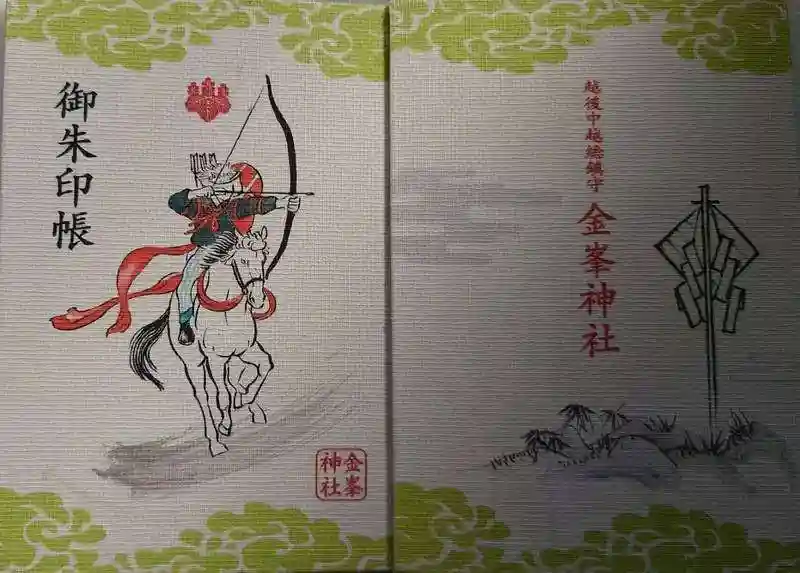 御朱印帳
金峯
神社
越後中越総鎮守
金峯神社